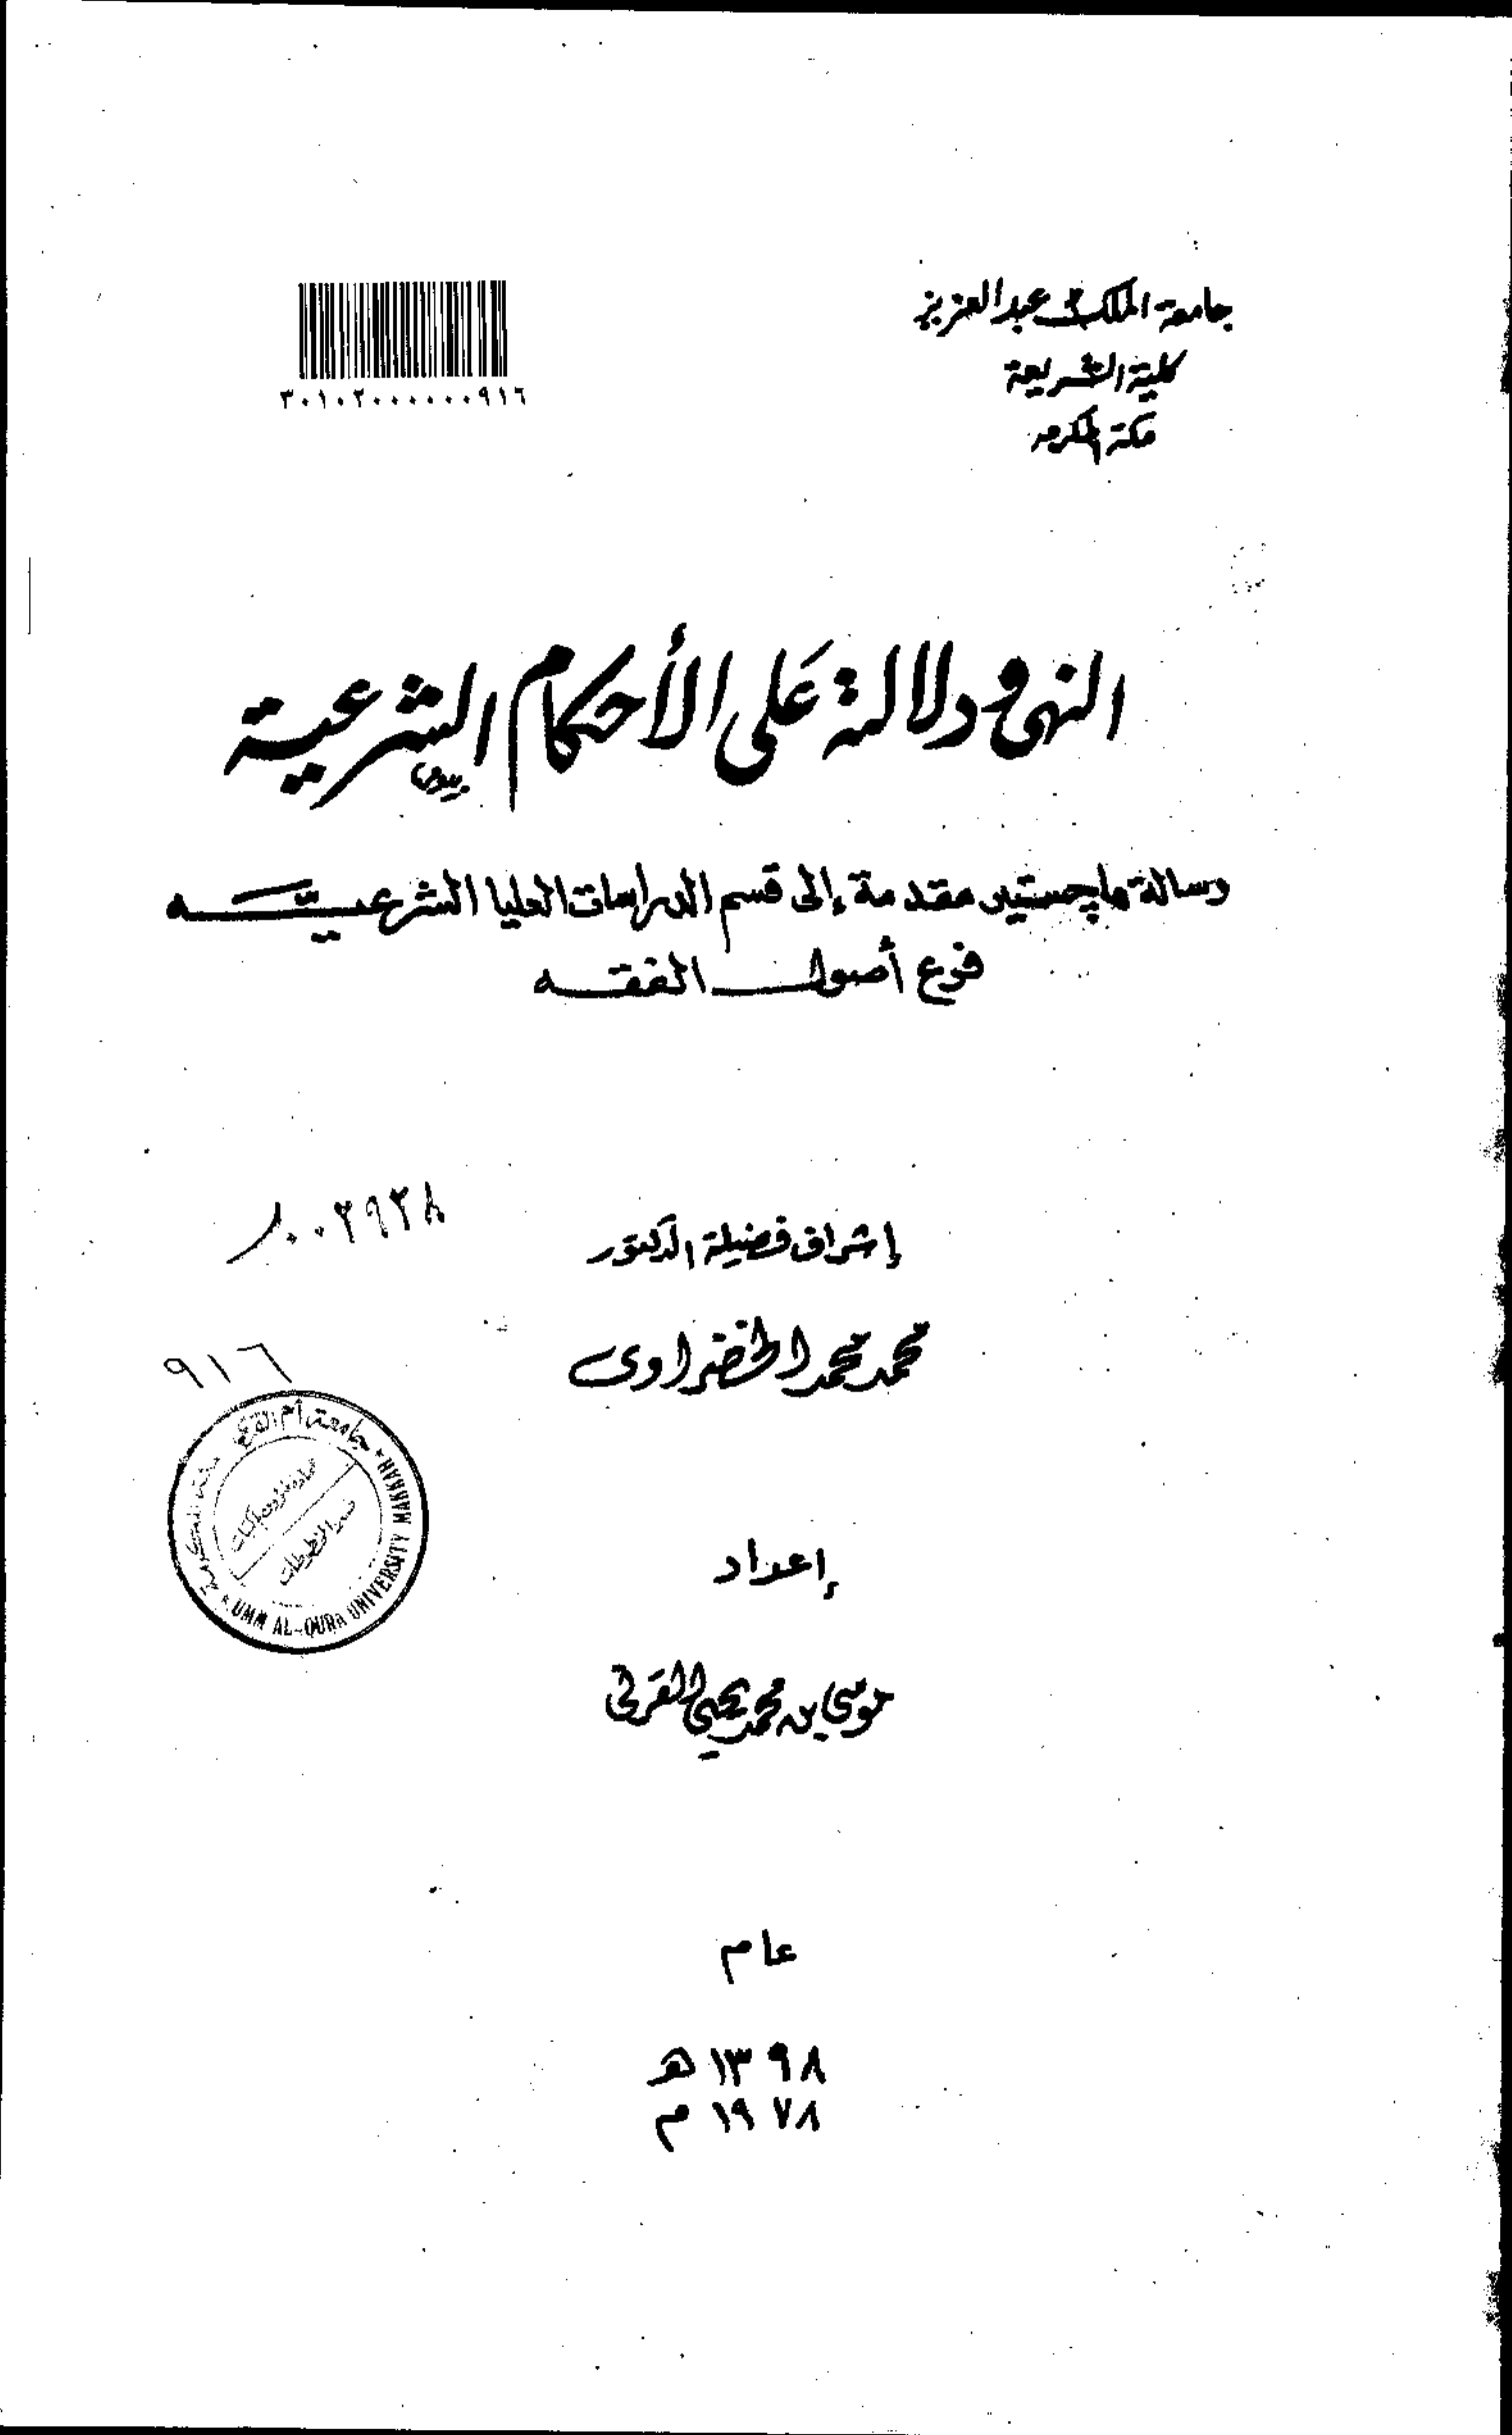 جامعة الملك عبدالعزيز
كلية الشريعة
مكة المكرمة
٣٠١٠٢٠٠٠٠٠٠٩١٦
النهى ودلالة على الأحكام الشرعية
رسالة ماجستير مقدمة إلى قسم الدراسات العليا الشرعية
فرع أصول الفقه
إشراف فضيلة الدكتور
١٠٠٢٩٢٨
محمد محمد الخضراوى
٩١٦
جامعة أم القرى مكة المكرمة
UMM AL-QURA UNIVERSITY MAKKAH
قسم المخطوطات
إعداد
موسى بن محمد يحيى القرنى
عام
١٣٩٨ هـ
١٩٧٨ م